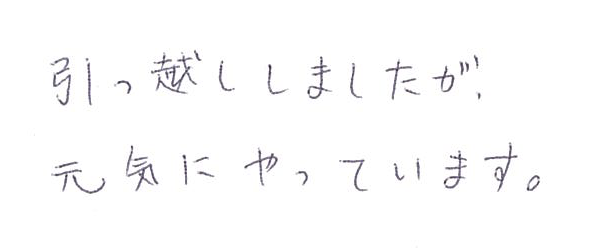 引っ越ししましたが、
元気にやっています。